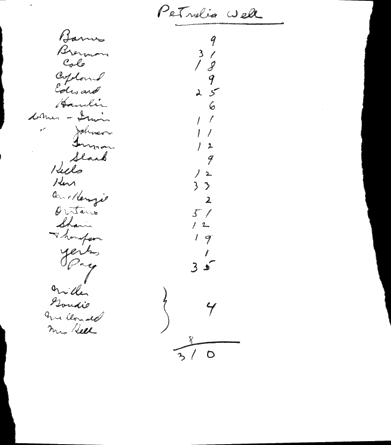 Petrolia Well
Barnes 9
Brennan 31
Cole 18
Copland 9
Edward 25
Hamlin 6
Irwin 11
" Johnson 11
12
Slack 9
Kells 12
Kerr 33
McKenzie 2
Ontario 51
Shaw 12
Thompson 19
Yerks 1
Pay 35
Miller
Goudie
McDonald } 4
Mrs Kell
8
310